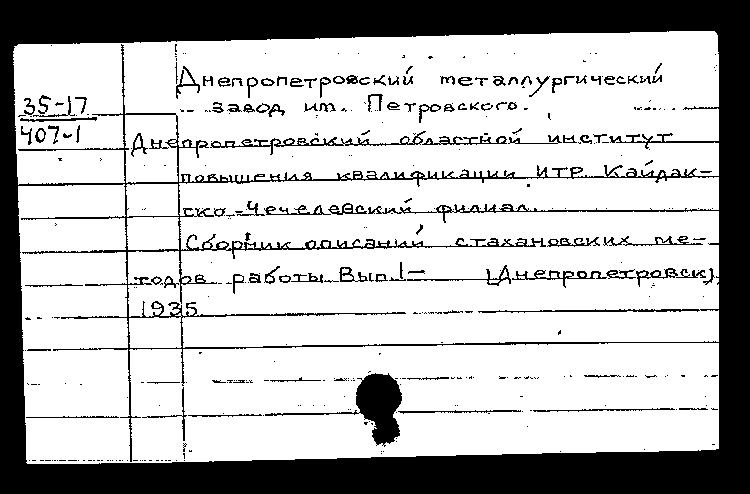 35-17
407-1
Днепропетровский металлургический
завод им. Петровского.
Днепропетровский областной институт
повышения квалификации ИТР. Кайдак-
ско-Чечелевский филиал.
Сборник описаний стахановских ме-
тодов работы. Вып. 1- [Днепропетровск],
1935